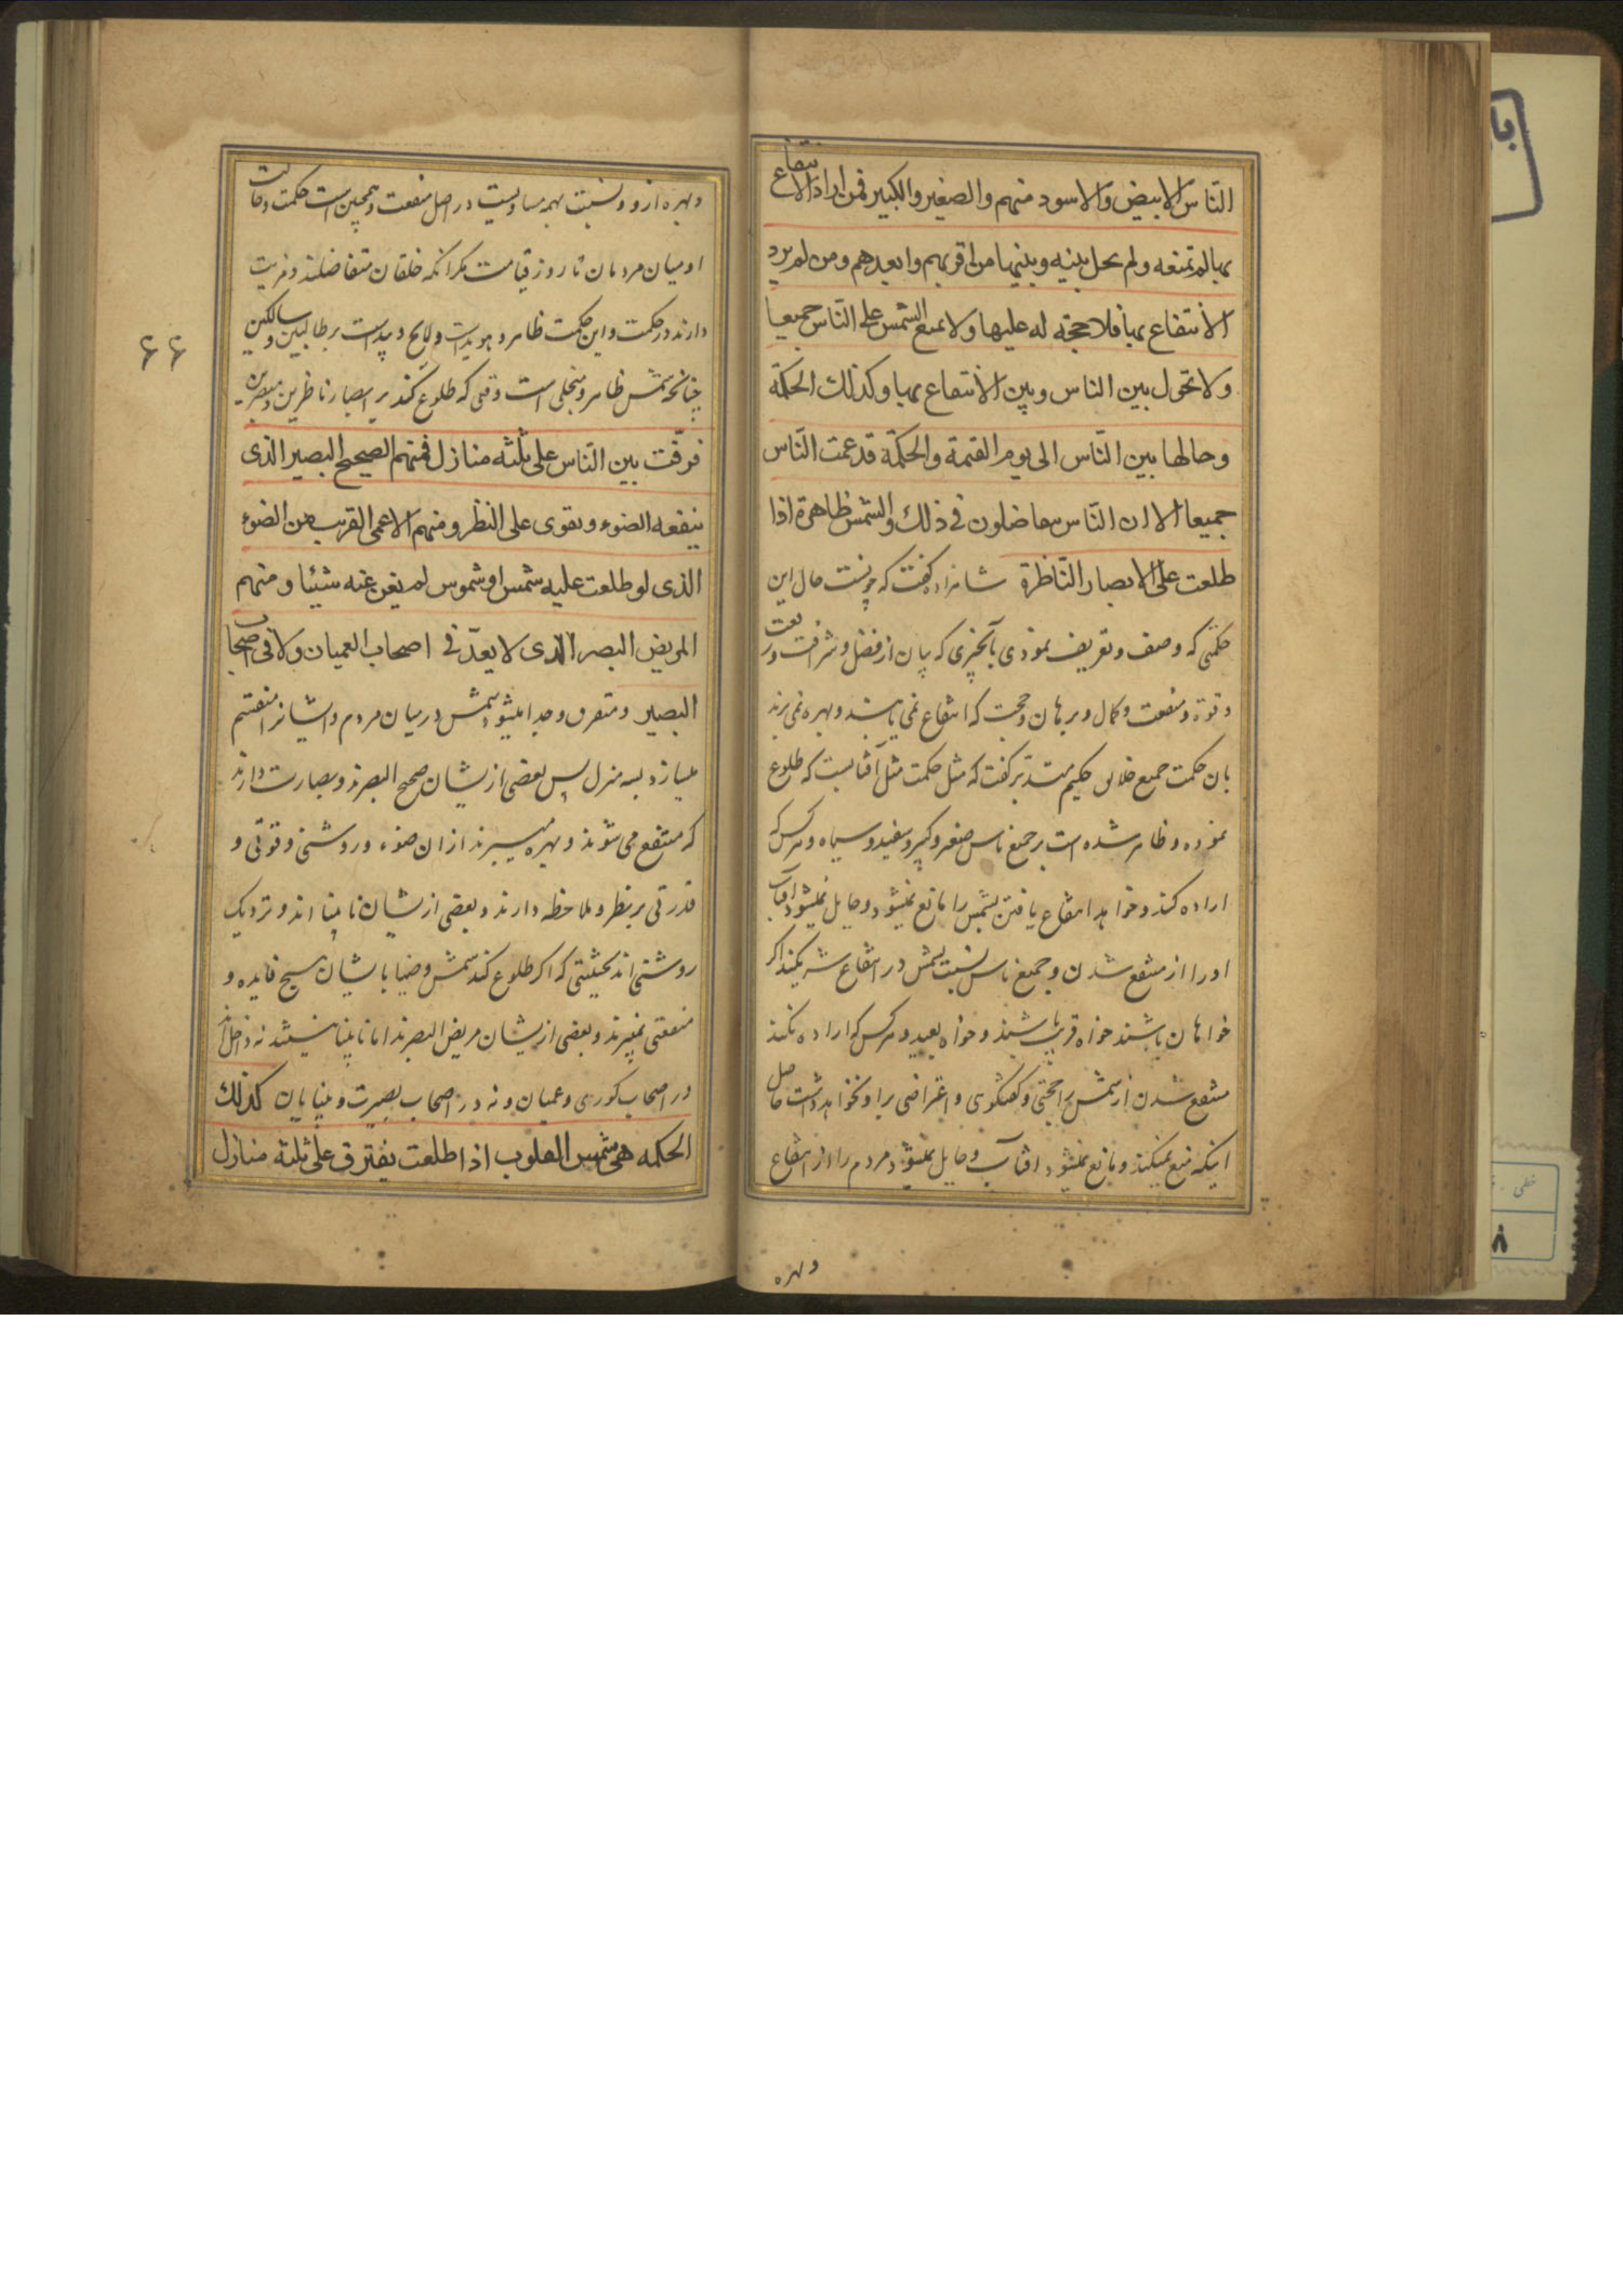 النّاس الابيض والاسود منهم والصغير والكبير فمن اراد الانتفاع
بها لم تمنعه ولم يحل بينه وبينها من اقربهم وابعدهم ومن لم يرد
الانتفاع بها فلا حجة له عليها ولا تمنع الشمس على النّاس جميعا
ولا تحول بين الناس وبين الانتفاع بها وكذلك الحكمة
وحالها بين النّاس الى يوم القيمة والحكمة قد عمت النّاس
جميعا الا ان النّاس يتفاضلون فى ذلك والشمس ظاهرة اذا
طلعت على الابصار النّاظرة شاهزاده كفت كه چونست حال اين
حكمتى كه وصف وتعريف نمودى بآنچيزى كه بيان از فضل وشرافت ورفعت
وقوة ومنفعت وكمال وبرهان وحجت كه انتفاع نمى يابند وبهره نمى برند
بان حكمت جميع خلايق حكيم گفت كه مثل حكمت مثل آفتابيست كه طلوع
نموده وظاهر شده است بر جميع ناس صغير وكبير وسفيد وسياه وهركس كه
اراده كند وخواهد انتفاع يافتن بشمس را مانع نميشود وحايل نميشود آفتاب
او را از منتفع شدن وجميع ناس نسبت بشمس در انتفاع شريكند اگر
خواهان باشند خواه قريب باشند وخواه بعيد وهركس كه اراده نكند
منتفع شدن از شمس را حجتى وكفتگوى واعتراضى بر او نخواهد داشت حاصل
اينكه منع نميكند ومانع نميشود آفتاب وحايل نميشود مردم را از انتفاع
وبهره
وبهره از او ونسبت بهمه مساويست در اصل منفعت وهمچنين است حكمت وحالت
او ميان مردمان تا روز قيامت مگر انكه خلقان متفاضلند ومزيت
دارند در حكمت واين حكمت ظاهر وهويداست ولايح وپيداست بر طالبين وسالكين
چنانچه شمس ظاهر ومنجلى است وقتى كه طلوع كند بر ابصار ناظرين ومبصرين
فرقت بين النّاس على ثلثه منازل فمنهم الصحيح البصير الذى
ينفعه الضوء ويقوى على النظر ومنهم الاعمى القريب من الضوء
الذى لو طلعت عليه شمس او شموس لم يغن عنه شيئا ومنهم
المريض البصر الذى لا يعدّ فى اصحاب العميان ولا فى اصحاب
البصير ومتفرق وجدا ميشود شمس در ميان مردم وايشانرا منقسم
ميسازد بسه منزل پس بعضى از ايشان صحيح البصرند وبصارت دارند
كه منتفع مى شوند وبهره ميبرند از ان ضوء وروشنى وقوتى و
قدرتى بر نظر وملاحظه دارند وبعضى از ايشان نابينا اند ونزديك
روشنى اند بحيثيتى كه اكر طلوع كند شمس وضيا بايشان هيچ فايده و
منفعتى نميبرند وبعضى از ايشان مريض البصرند اما نابينا نيستند نه داخل اند
در اصحاب كورى وعميان ونه در اصحاب بصيرت وبينايان كذلك
الحكمه هى شمس القلوب اذا طلعت يفترق على ثلثة منازل
۶۶
خطى
۸